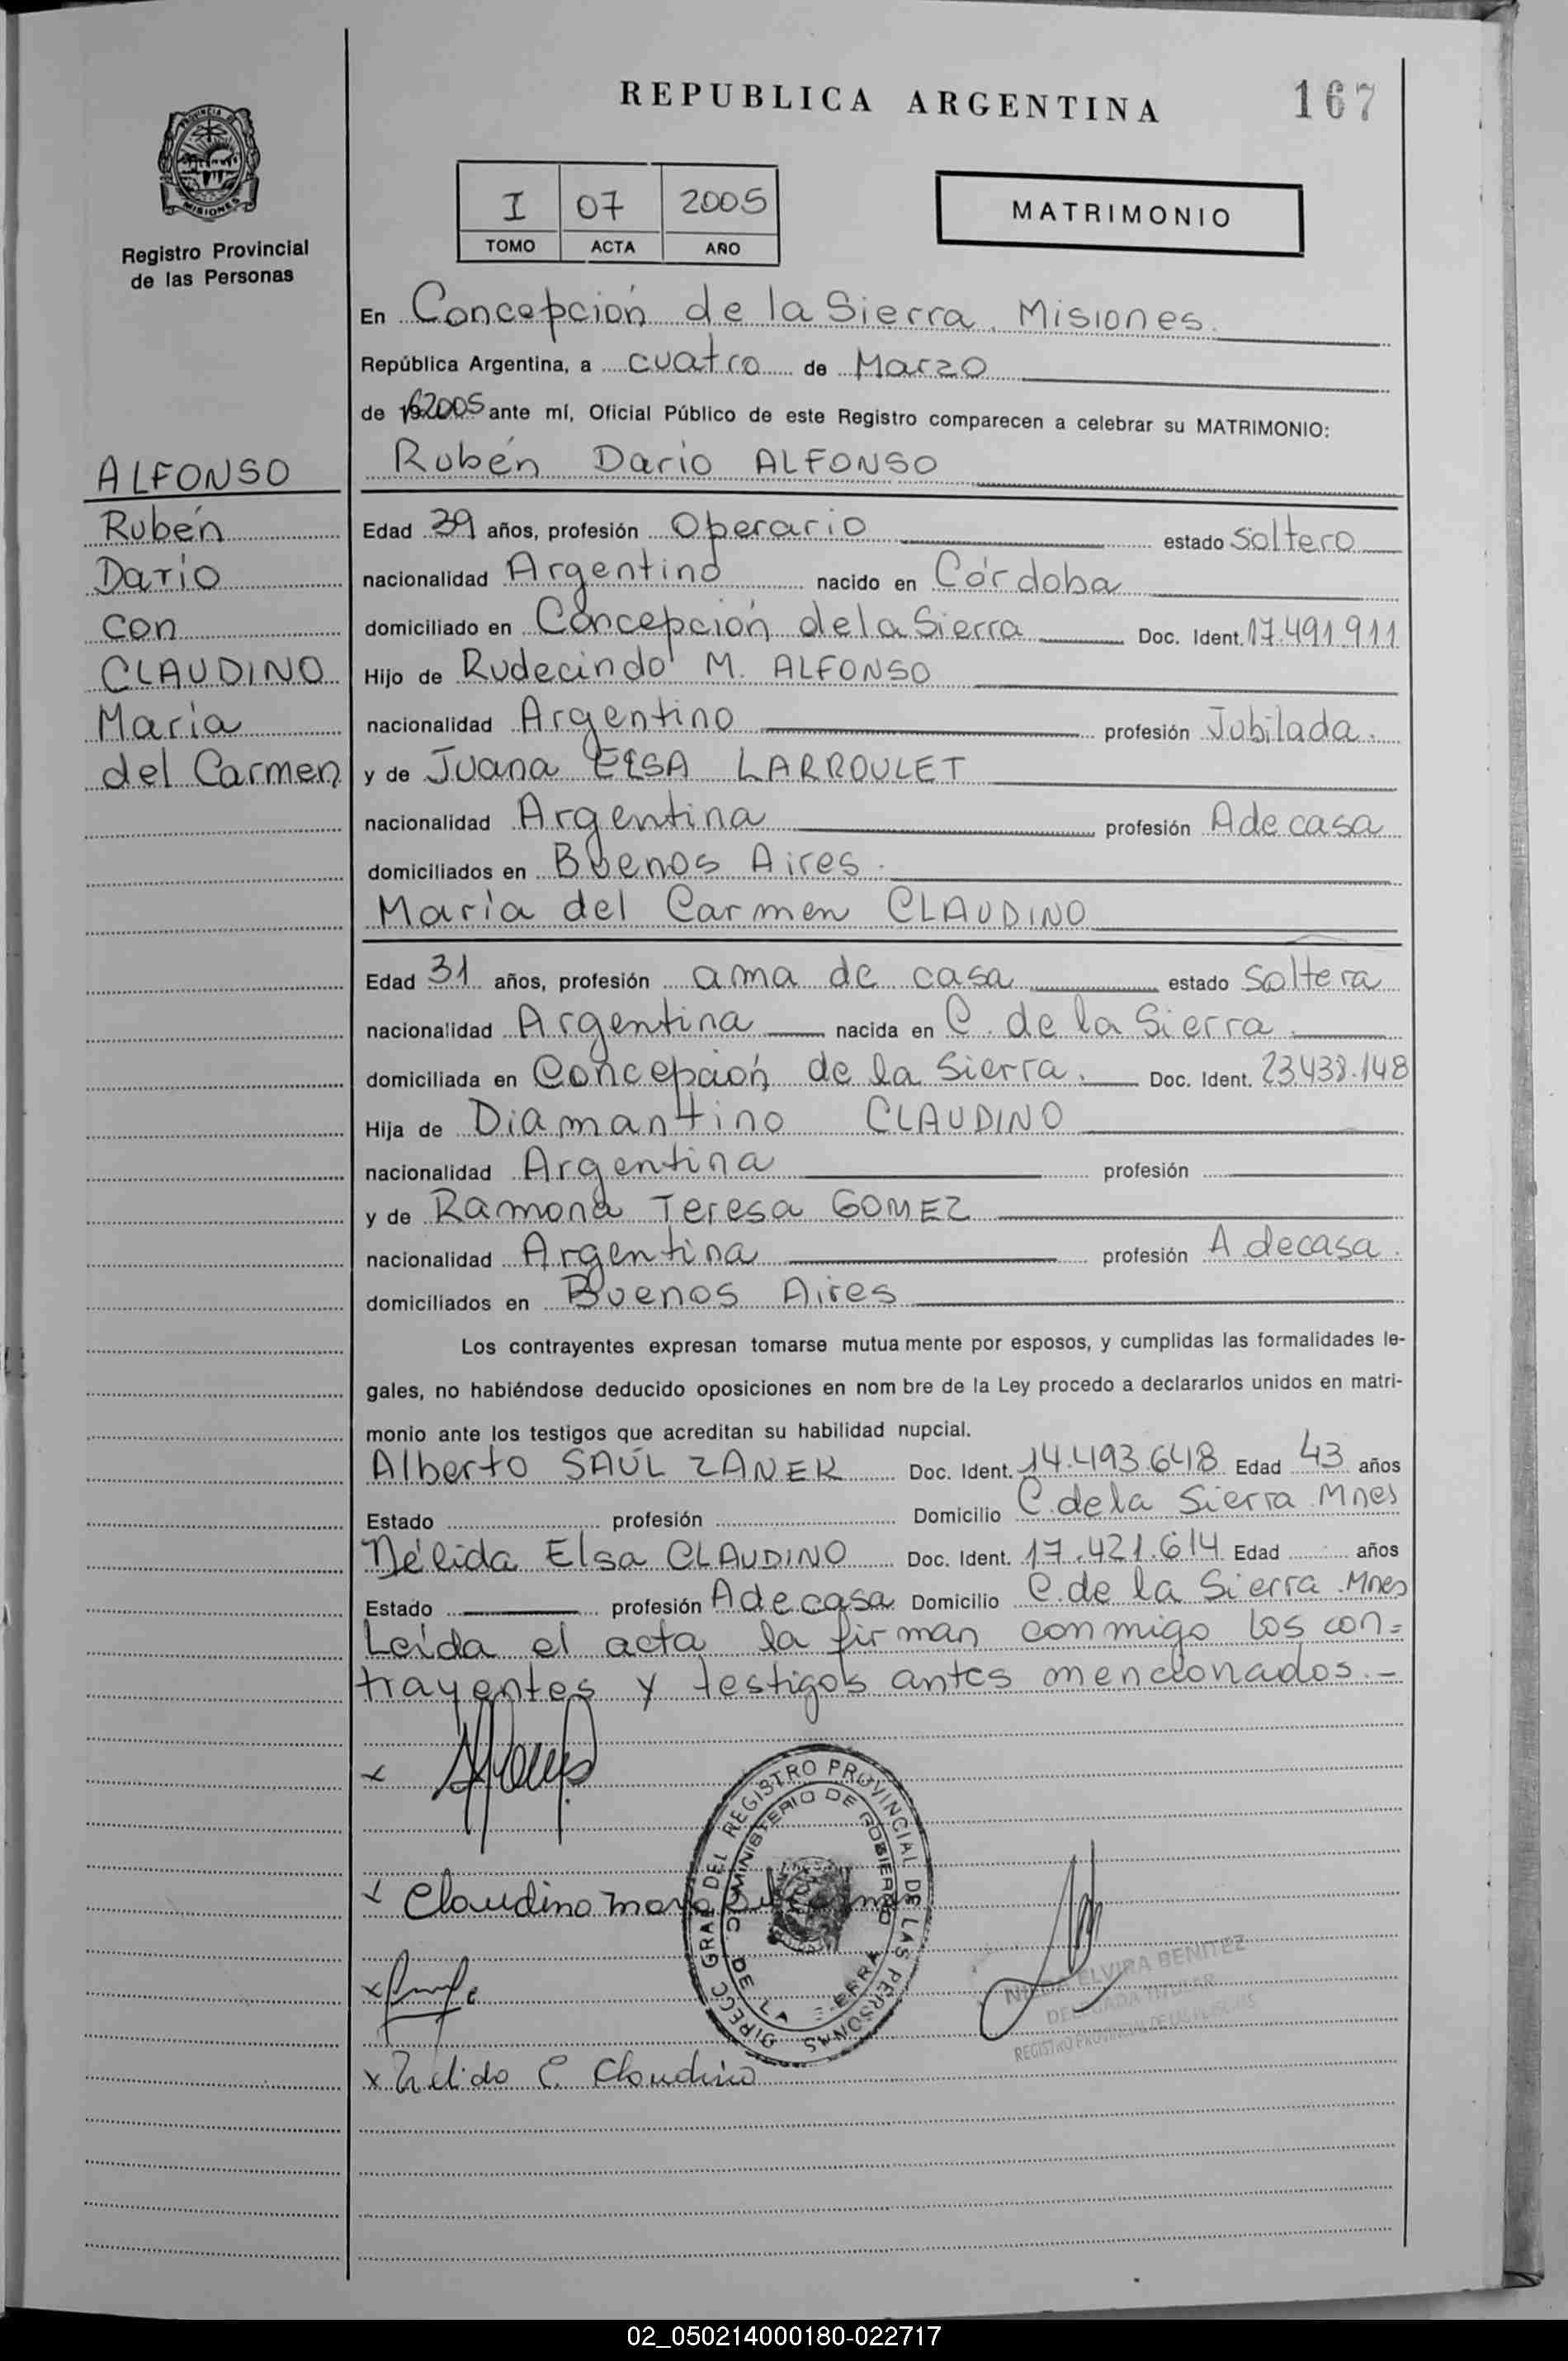 REPUBLICA ARGENTINA
167
PROVINCIA DE
MISIONES
Registro Provincial
de las Personas
I 07 2005
TOMO ACTA AÑO
MATRIMONIO
En Concepción de la Sierra. Misiones.
República Argentina, a cuatro de Marzo
de 2005 ante mí, Oficial Público de este Registro comparecen a celebrar su MATRIMONIO:
Rubén Dario ALFONSO
ALFONSO
Rubén
Dario
con
CLAUDINO
María
del Carmen
Edad 39 años, profesión Operario estado Soltero
nacionalidad Argentino nacido en Córdoba
domiciliado en Concepción de la Sierra Doc. Ident. 17.491.911
Hijo de Rudecindo M. ALFONSO
nacionalidad Argentino profesión Jubilada.
y de Juana ELSA LARROULET
nacionalidad Argentina profesión A de casa
domiciliados en Buenos Aires.
María del Carmen CLAUDINO
Edad 31 años, profesión ama de casa estado Soltera
nacionalidad Argentina nacida en C. de la Sierra
domiciliada en Concepción de la Sierra. Doc. Ident. 23.438.148
Hija de Diamantino CLAUDINO
nacionalidad Argentina profesión
y de Ramona Teresa GOMEZ
nacionalidad Argentina profesión A de casa.
domiciliados en Buenos Aires
Los contrayentes expresan tomarse mutua mente por esposos, y cumplidas las formalidades le-
gales, no habiéndose deducido oposiciones en nom bre de la Ley procedo a declararlos unidos en matri-
monio ante los testigos que acreditan su habilidad nupcial.
Alberto SAÚL ZANEK Doc. Ident. 14.493.648 Edad 43 años
Estado profesión Domicilio C. de la Sierra Mnes
Nélida Elsa CLAUDINO Doc. Ident. 17.421.614 Edad años
Estado profesión A de casa Domicilio C. de la Sierra .Mnes
Leída el acta la firman conmigo los con=
trayentes y testigos antes mencionados.-
x
x Claudino Maria del Carmen
DIRECC GRAL DEL REGISTRO PROVINCIAL DE LAS PERSONAS
MINISTERIO DE GOBIERNO
DE LA
ERRA
x
ELVIRA BENITEZ
TITULAR
REGISTRO PROVINCIAL DE LAS PERSONAS
x Nelida E. Claudino
02_050214000180-022717